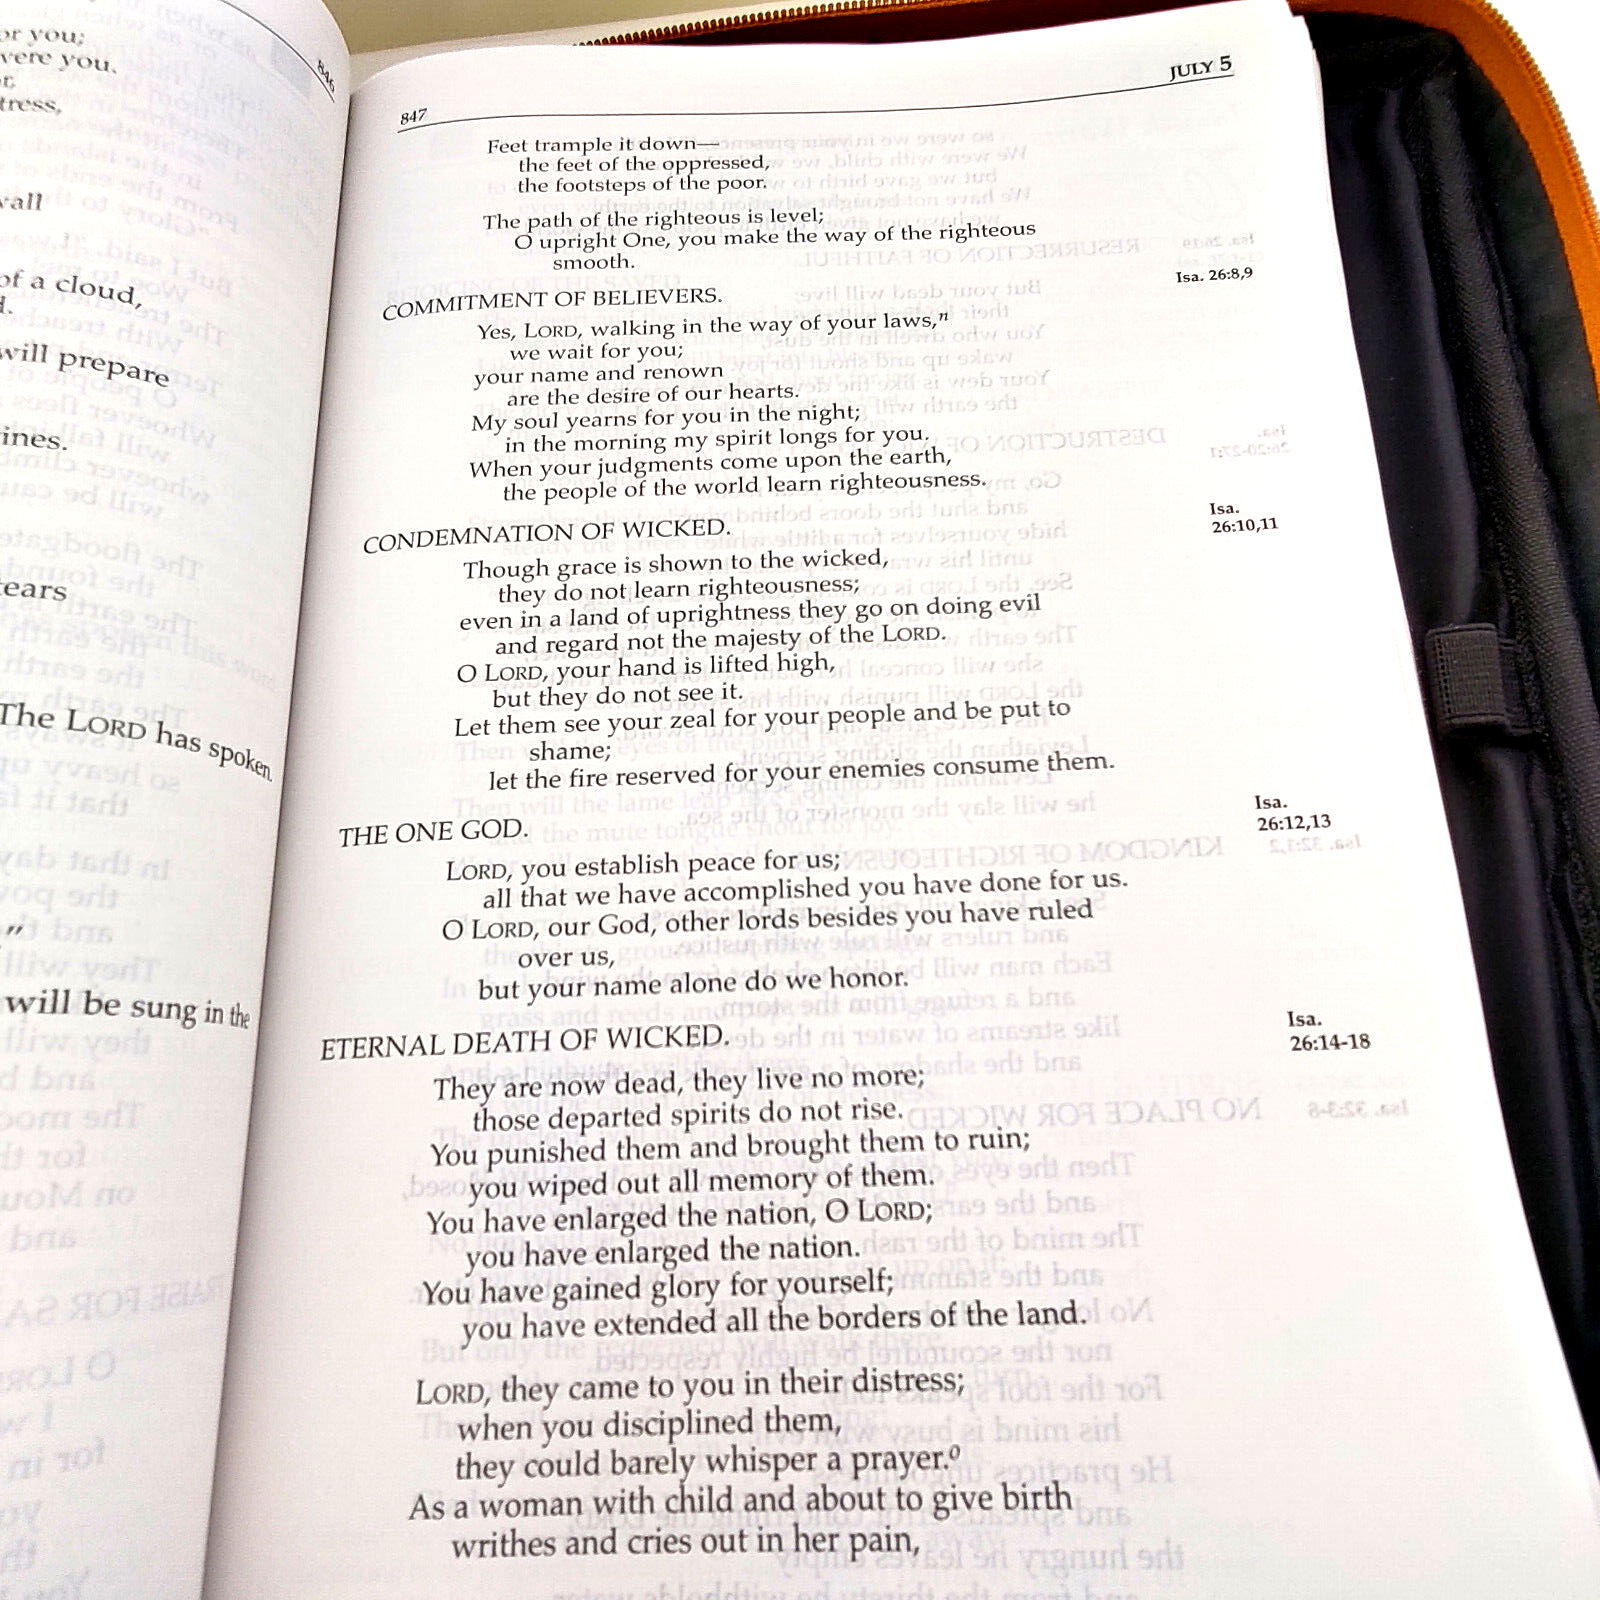 or you;
were you.
tress,
of a cloud,
will prepare
ines.
The LORD has spoken.
"
will be sung in the
846
847
JULY 5
Feet trample it down—
the feet of the oppressed,
the footsteps of the poor.
The path of the righteous is level;
O upright One, you make the way of the righteous
smooth.
COMMITMENT OF BELIEVERS.
Isa. 26:8,9
Yes, LORD, walking in the way of your laws,n
we wait for you;
your name and renown
are the desire of our hearts.
My soul yearns for you in the night;
in the morning my spirit longs for you.
When your judgments come upon the earth,
the people of the world learn righteousness.
CONDEMNATION OF WICKED.
Isa.
26:10,11
Though grace is shown to the wicked,
they do not learn righteousness;
even in a land of uprightness they go on doing evil
and regard not the majesty of the LORD.
O LORD, your hand is lifted high,
but they do not see it.
Let them see your zeal for your people and be put to
shame;
let the fire reserved for your enemies consume them.
THE ONE GOD.
Isa.
26:12,13
LORD, you establish peace for us;
all that we have accomplished you have done for us.
O LORD, our God, other lords besides you have ruled
over us,
but your name alone do we honor.
ETERNAL DEATH OF WICKED.
Isa.
26:14-18
They are now dead, they live no more;
those departed spirits do not rise.
You punished them and brought them to ruin;
you wiped out all memory of them.
You have enlarged the nation, O LORD;
you have enlarged the nation.
You have gained glory for yourself;
you have extended all the borders of the land.
LORD, they came to you in their distress;
when you disciplined them,
they could barely whisper a prayer.o
As a woman with child and about to give birth
writhes and cries out in her pain,